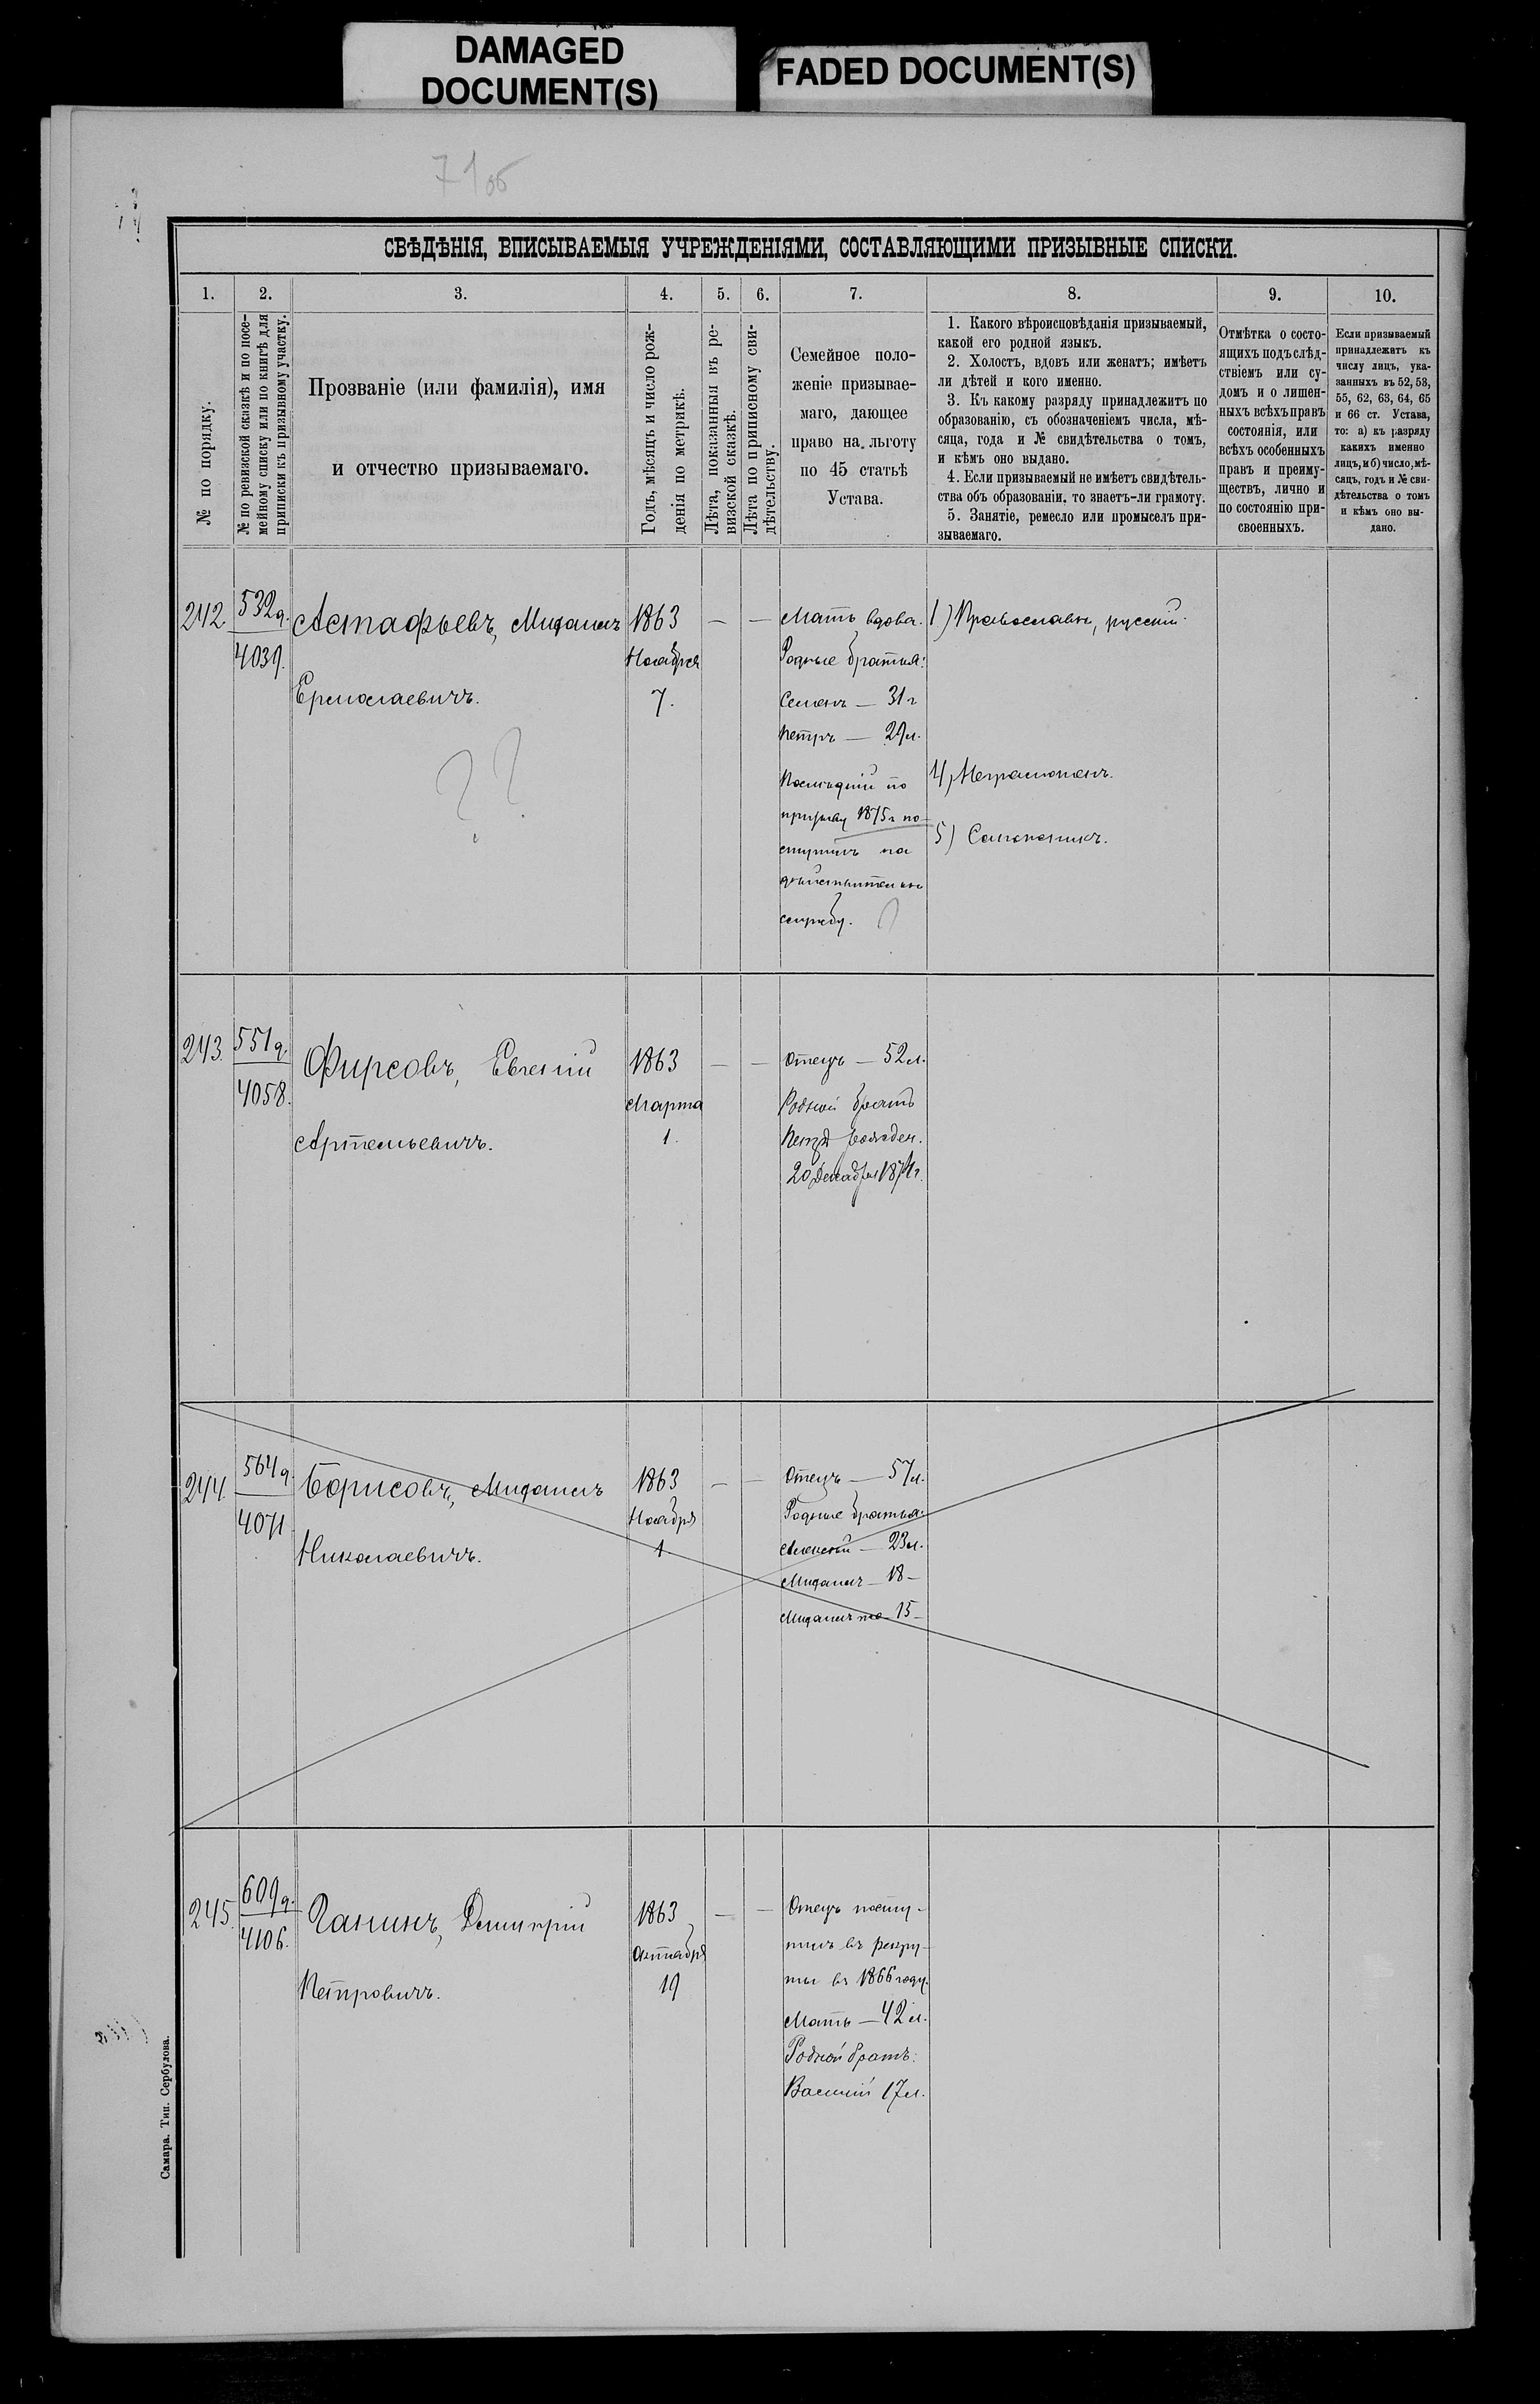 DAMAGED
DOCUMENT(S)
FADED DOCUMENT(S)
71об
СВѢДѢНІЯ, ВПИСЫВАЕМЫЯ УЧРЕЖДЕНІЯМИ, СОСТАВЛЯЮЩИМИ ПРИЗЫВНЫЕ СПИСКИ.
1. 2. 3. 4. 5. 6. 7. 8. 9. 10.
№ по порядку.
№ по ревизской сказкѣ и по посе-
мейному списку или по книгѣ для
приписки къ призывному участку.
Прозваніе (или фамилія), имя
и отчество призываемаго.
Годъ, мѣсяцъ и число рож-
денія по метрикѣ.
Лѣта, показанныя въ ре-
визской сказкѣ.
Лѣта по приписному сви-
дѣтельству.
Семейное поло-
женіе призывае-
маго, дающее
право на льготу
по 45 статьѣ
Устава.
1. Какого вѣроисповѣданія призываемый,
какой его родной языкъ.
2. Холостъ, вдовъ или женатъ; имѣетъ
ли дѣтей и кого именно.
3. Къ какому разряду принадлежитъ по
образованію, съ обозначеніемъ числа, мѣ-
сяца, года и № свидѣтельства о томъ,
и кѣмъ оно выдано.
4. Если призываемый не имѣетъ свидѣтель-
ства объ образованіи, то знаетъ-ли грамоту.
5. Занятіе, ремесло или промыселъ при-
зываемаго.
Отмѣтка о состо-
ящихъ подъ слѣд-
ствіемъ или су-
домъ и о лишен-
ныхъ всѣхъ правъ
состоянія, или
всѣхъ особенныхъ
правъ и преиму-
ществъ, лично и
по состоянію при-
своенныхъ.
Если призываемый
принадлежитъ къ
числу лицъ, ука-
занныхъ въ 52, 53,
55, 62, 63, 64, 65
и 66 ст. Устава,
то: а) къ разряду
какихъ именно
лицъ, и б) число, мѣ-
сяцъ, годъ и № сви-
дѣтельства о томъ
и кѣмъ оно вы-
дано.
242. 532д. Астафьевъ, Михаилъ 1863 — — Мать вдова. 1) Православн, русскій.
4039. Ноября Родные братья:
Ермолаевичъ. 7. Семенъ — 31 г
Петръ — 29 л.
??
Послѣдній по 4) Неграмотенъ.
призыву 1875 г по-
ступилъ на 5) Сапожникъ.
дѣйствительн
службу. ?
243. 551д. Фирсовъ, Евгеній 1863 — — Отецъ — 52 л.
4058. Марта Родной братъ
Артемьевичъ. 1. Петръ рожден.
20 Декабря 1871 г.
244. 564д. Борисовъ, Михаилъ 1863 — — Отецъ — 57 л.
4071 Ноября Родные братья:
Николаевичъ. 1. Алексѣй — 23 л.
Михаилъ — 18 —
Михаилъ же — 15 —
245. 609д. Ганинъ, Димитрій 1863 — — Отецъ посту-
4106. Октября пилъ въ рекру-
Петровичъ. 19 ты въ 1866 году.
Мать — 42 л.
Родной братъ:
Василій 17 л.
Самара. Тип. Сербулова.